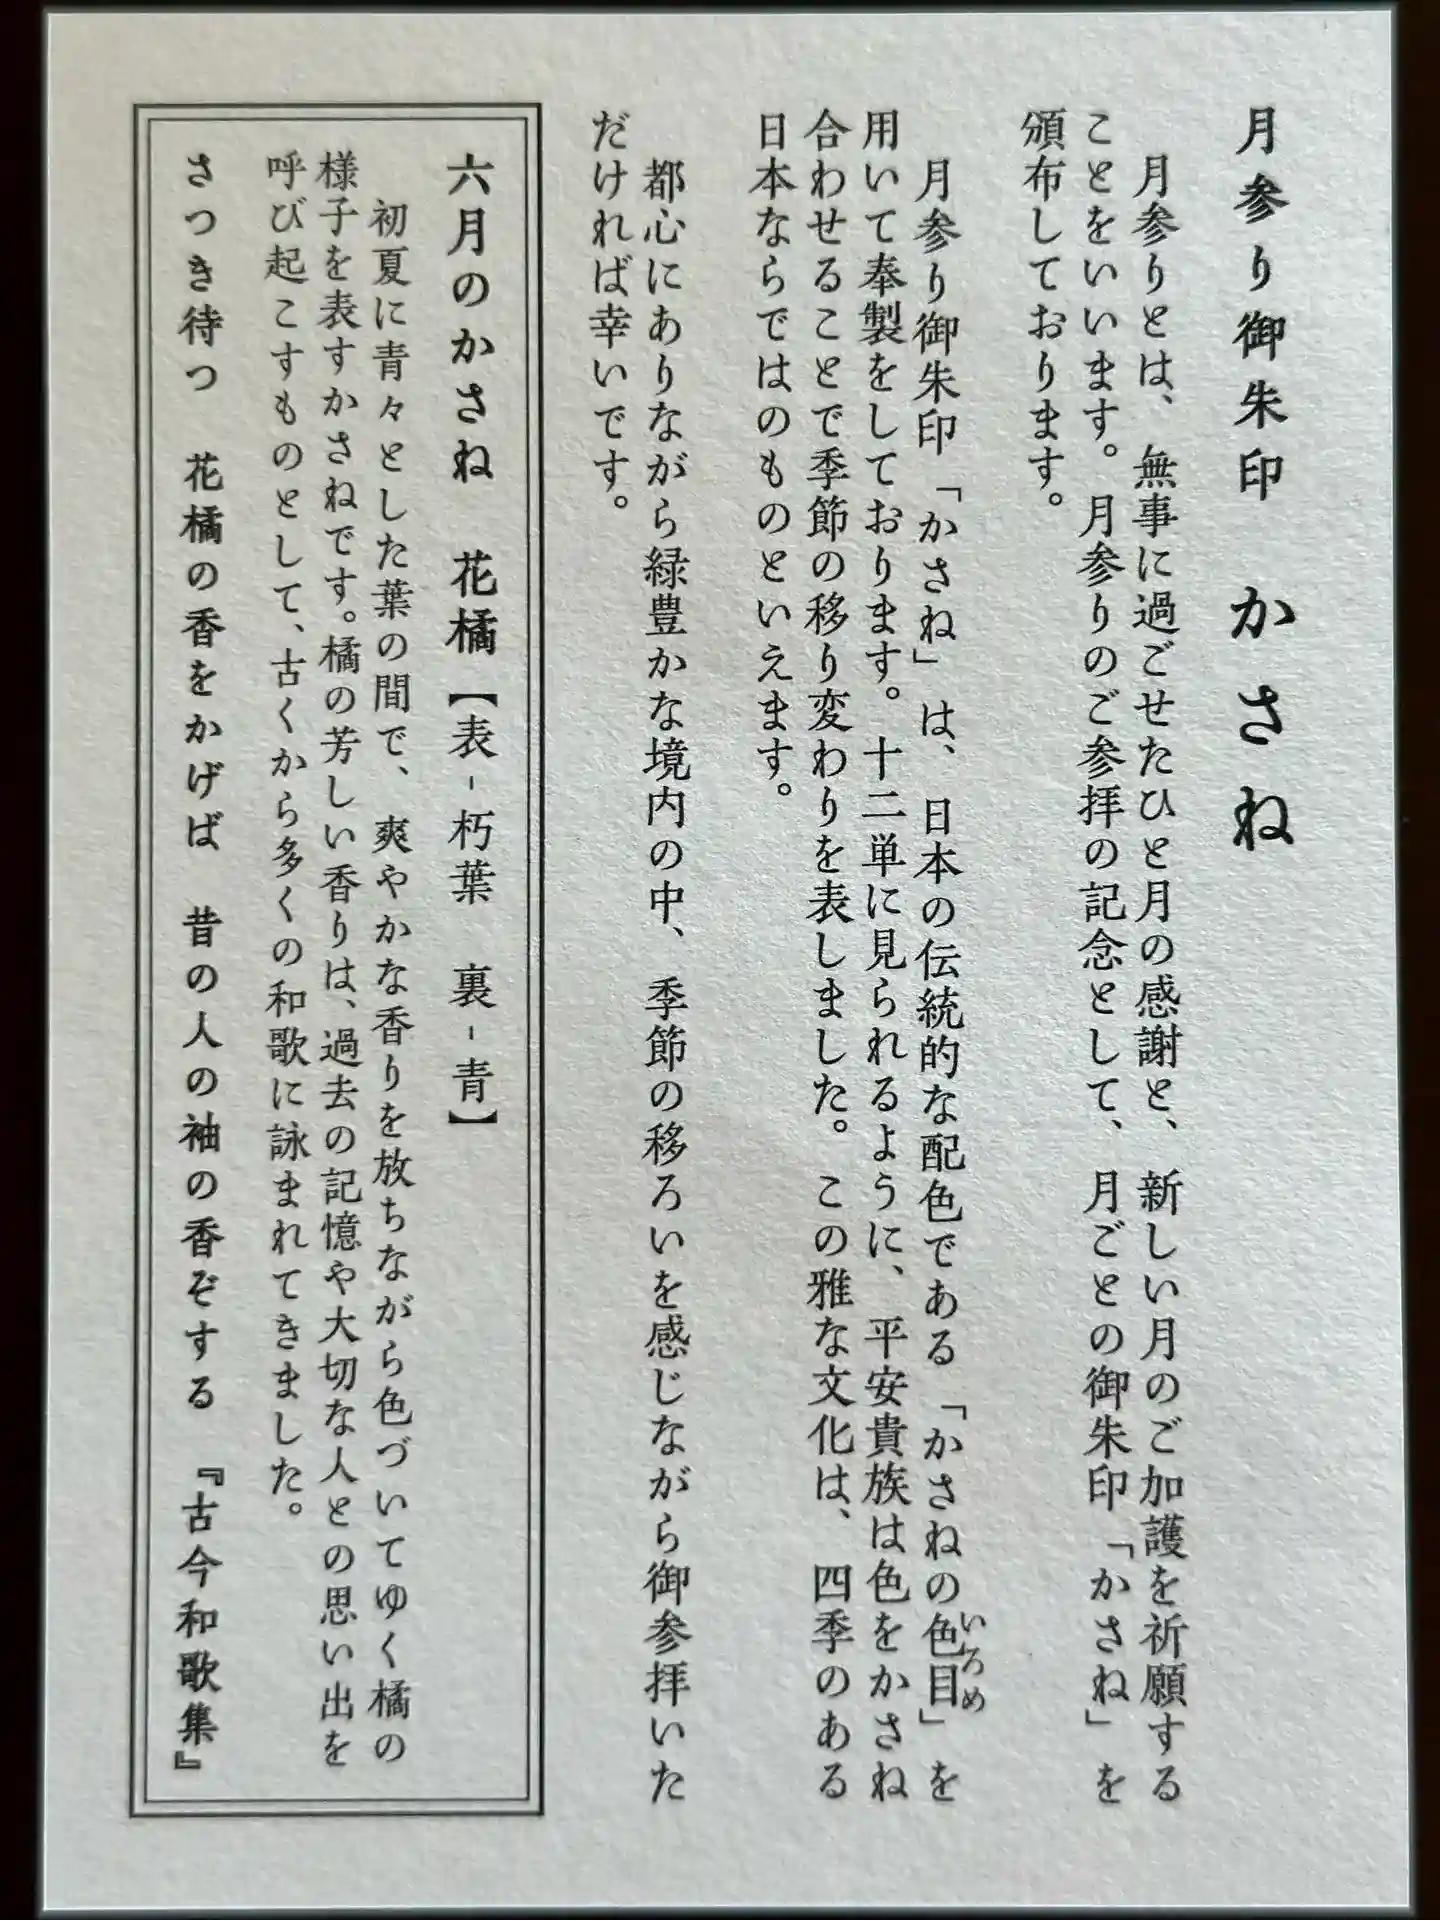 月参り御朱印　かさね
　月参りとは、無事に過ごせたひと月の感謝と、新しい月のご加護を祈願する
ことをいいます。月参りのご参拝の記念として、月ごとの御朱印「かさね」を
頒布しております。
　月参り御朱印「かさね」は、日本の伝統的な配色である「かさねの色目」を
いろめ
用いて奉製をしております。十二単に見られるように、平安貴族は色をかさね
合わせることで季節の移り変わりを表しました。この雅な文化は、四季のある
日本ならではのものといえます。
　都心にありながら緑豊かな境内の中、季節の移ろいを感じながら御参拝いた
だければ幸いです。
六月のかさね　花橘【表-朽葉　裏-青】
　初夏に青々とした葉の間で、爽やかな香りを放ちながら色づいてゆく橘の
様子を表すかさねです。橘の芳しい香りは、過去の記憶や大切な人との思い出を
呼び起こすものとして、古くから多くの和歌に詠まれてきました。
さつき待つ　花橘の香をかげば　昔の人の袖の香ぞする　『古今和歌集』